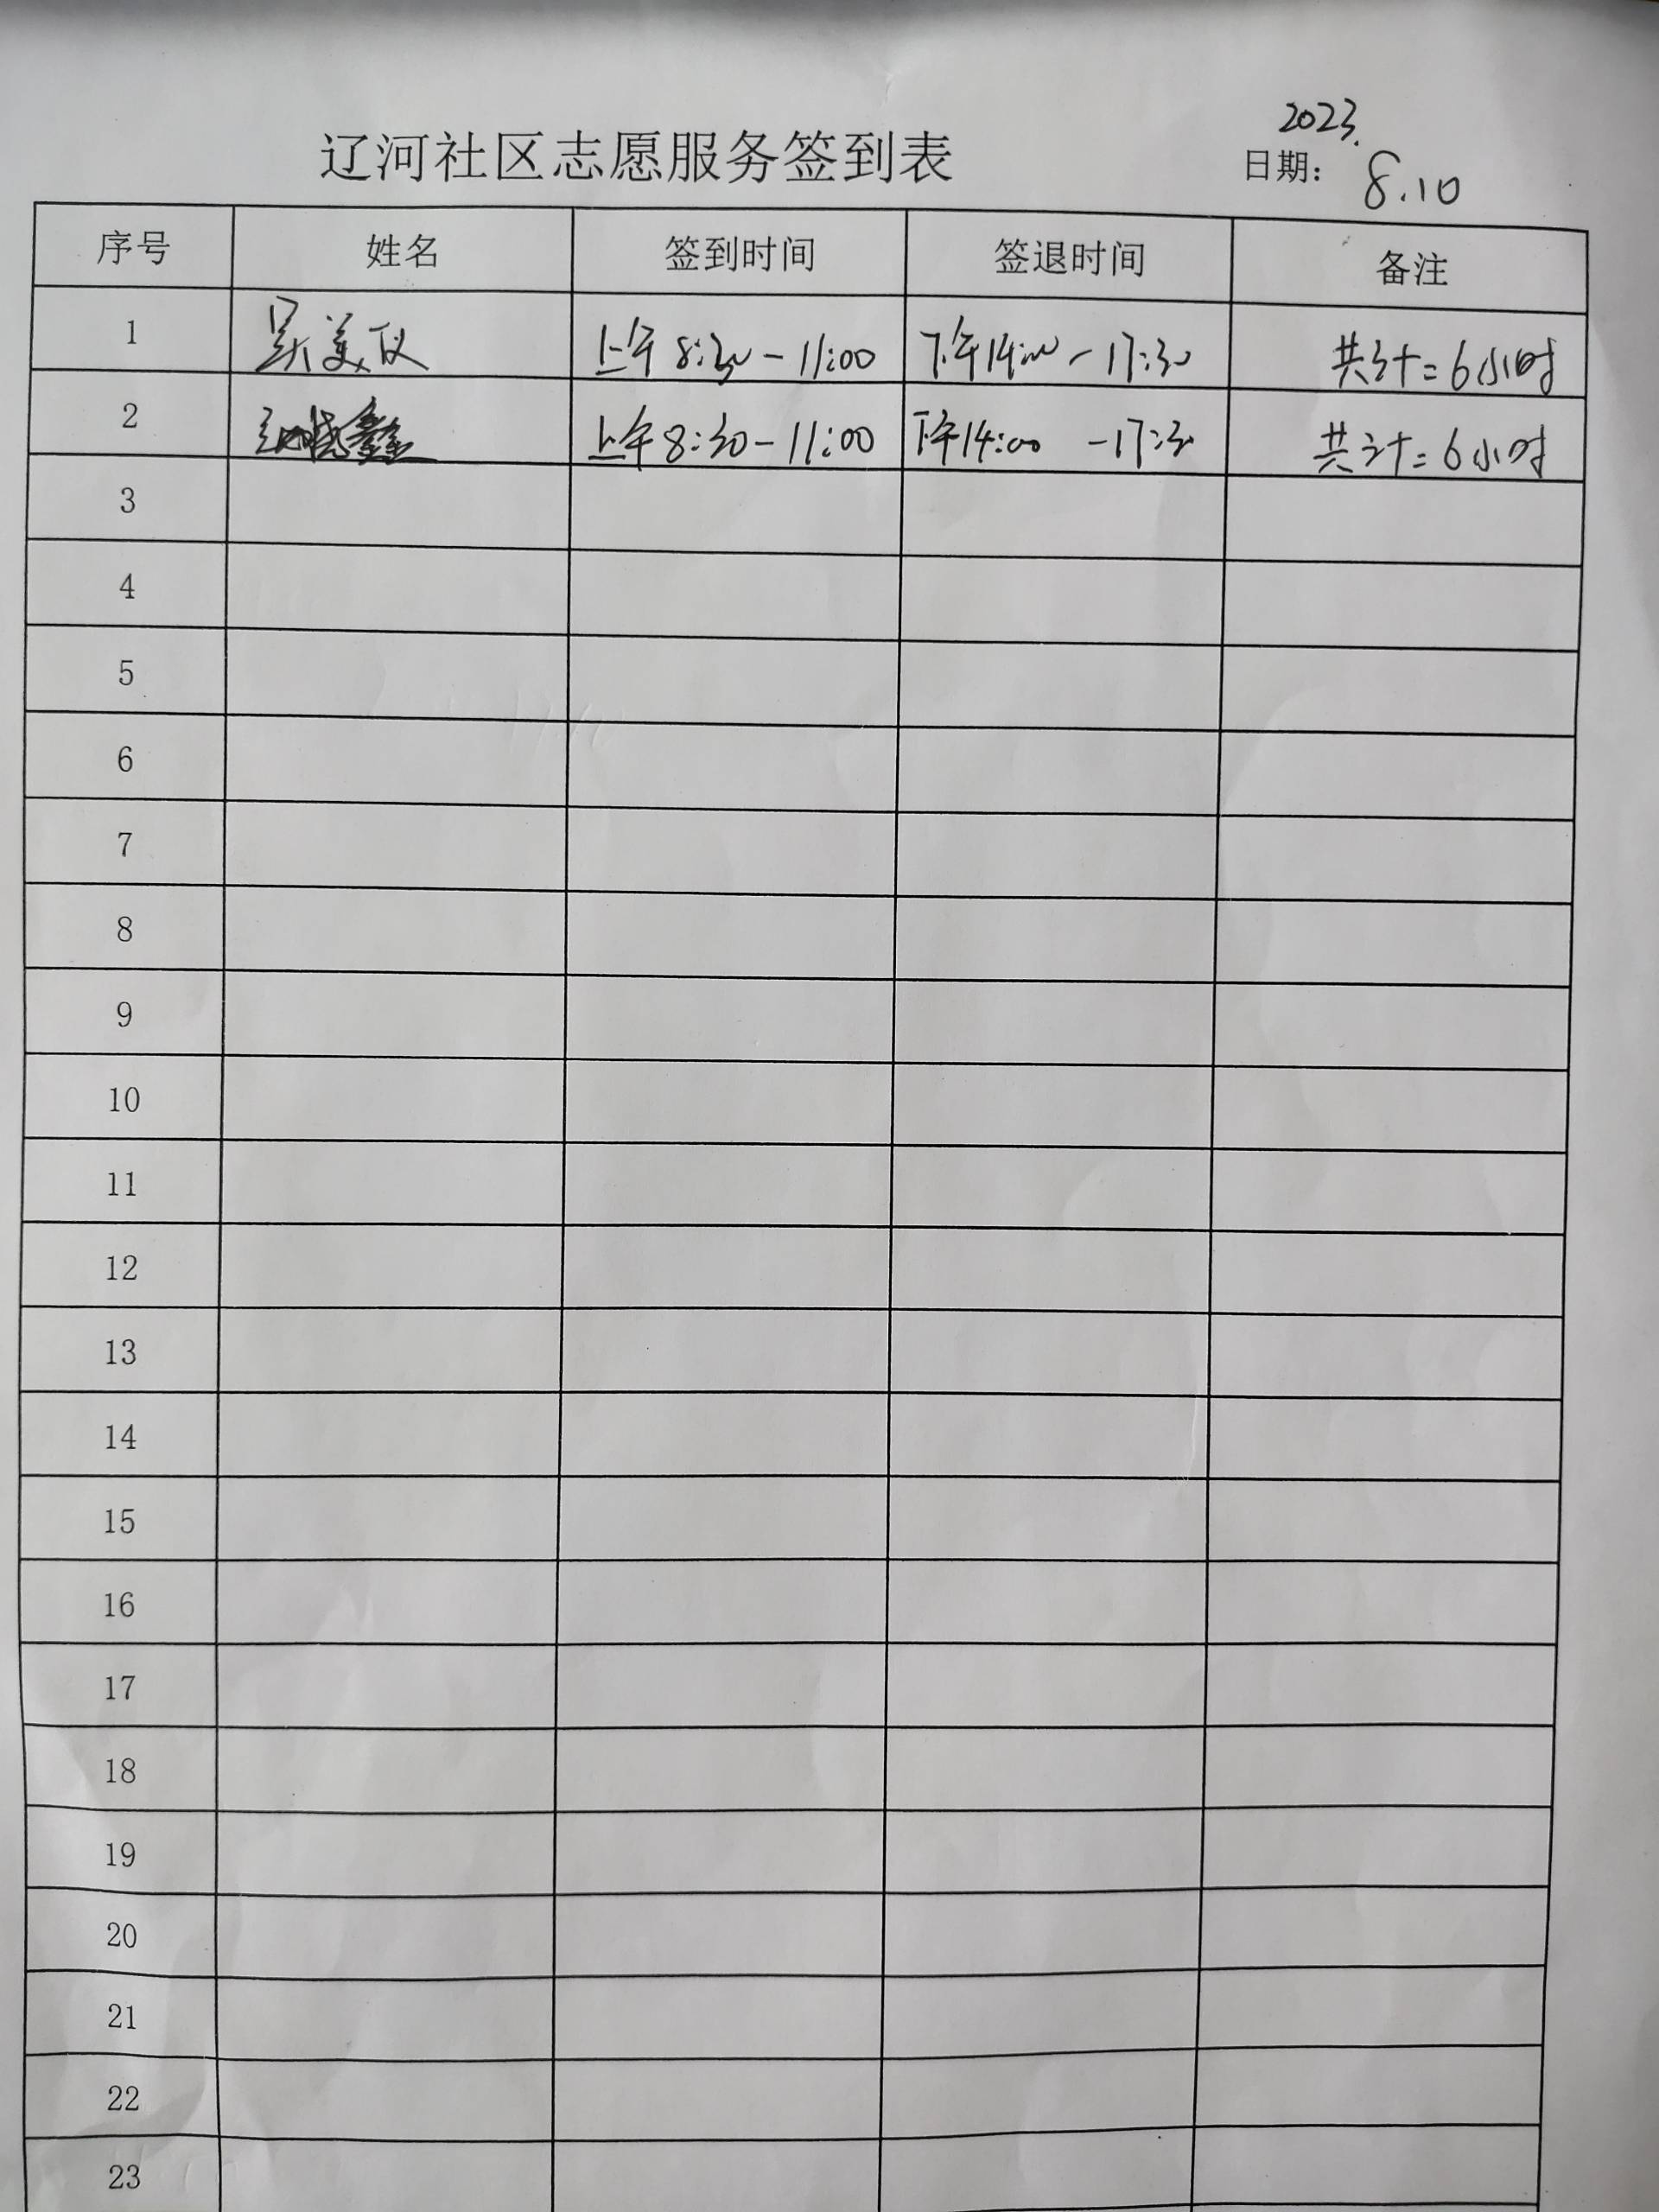 2023.
辽河社区志愿服务签到表 日期: 8.10
序号 姓名 签到时间 签退时间 备注
1 吴美仪 上午8:30-11:00 下午14:00-17:30 共计=6小时
2 上午8:30-11:00 下午14:00-17:30 共计=6小时
3
4
5
6
7
8
9
10
11
12
13
14
15
16
17
18
19
20
21
22
23